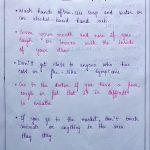 • Wash hands often with soap and water or
an alcohol-based hand rub.
• Cover your mouth and nose if you
cough or sneeze with the inside
of your elbow
• Don't get close to anyone who has
cold or flu-like symptoms
• Go to the doctor if you have a fever,
cough or feel that it is difficult
to breathe
• If you go to the market, don't touch
animals or anything in the area
they stay.